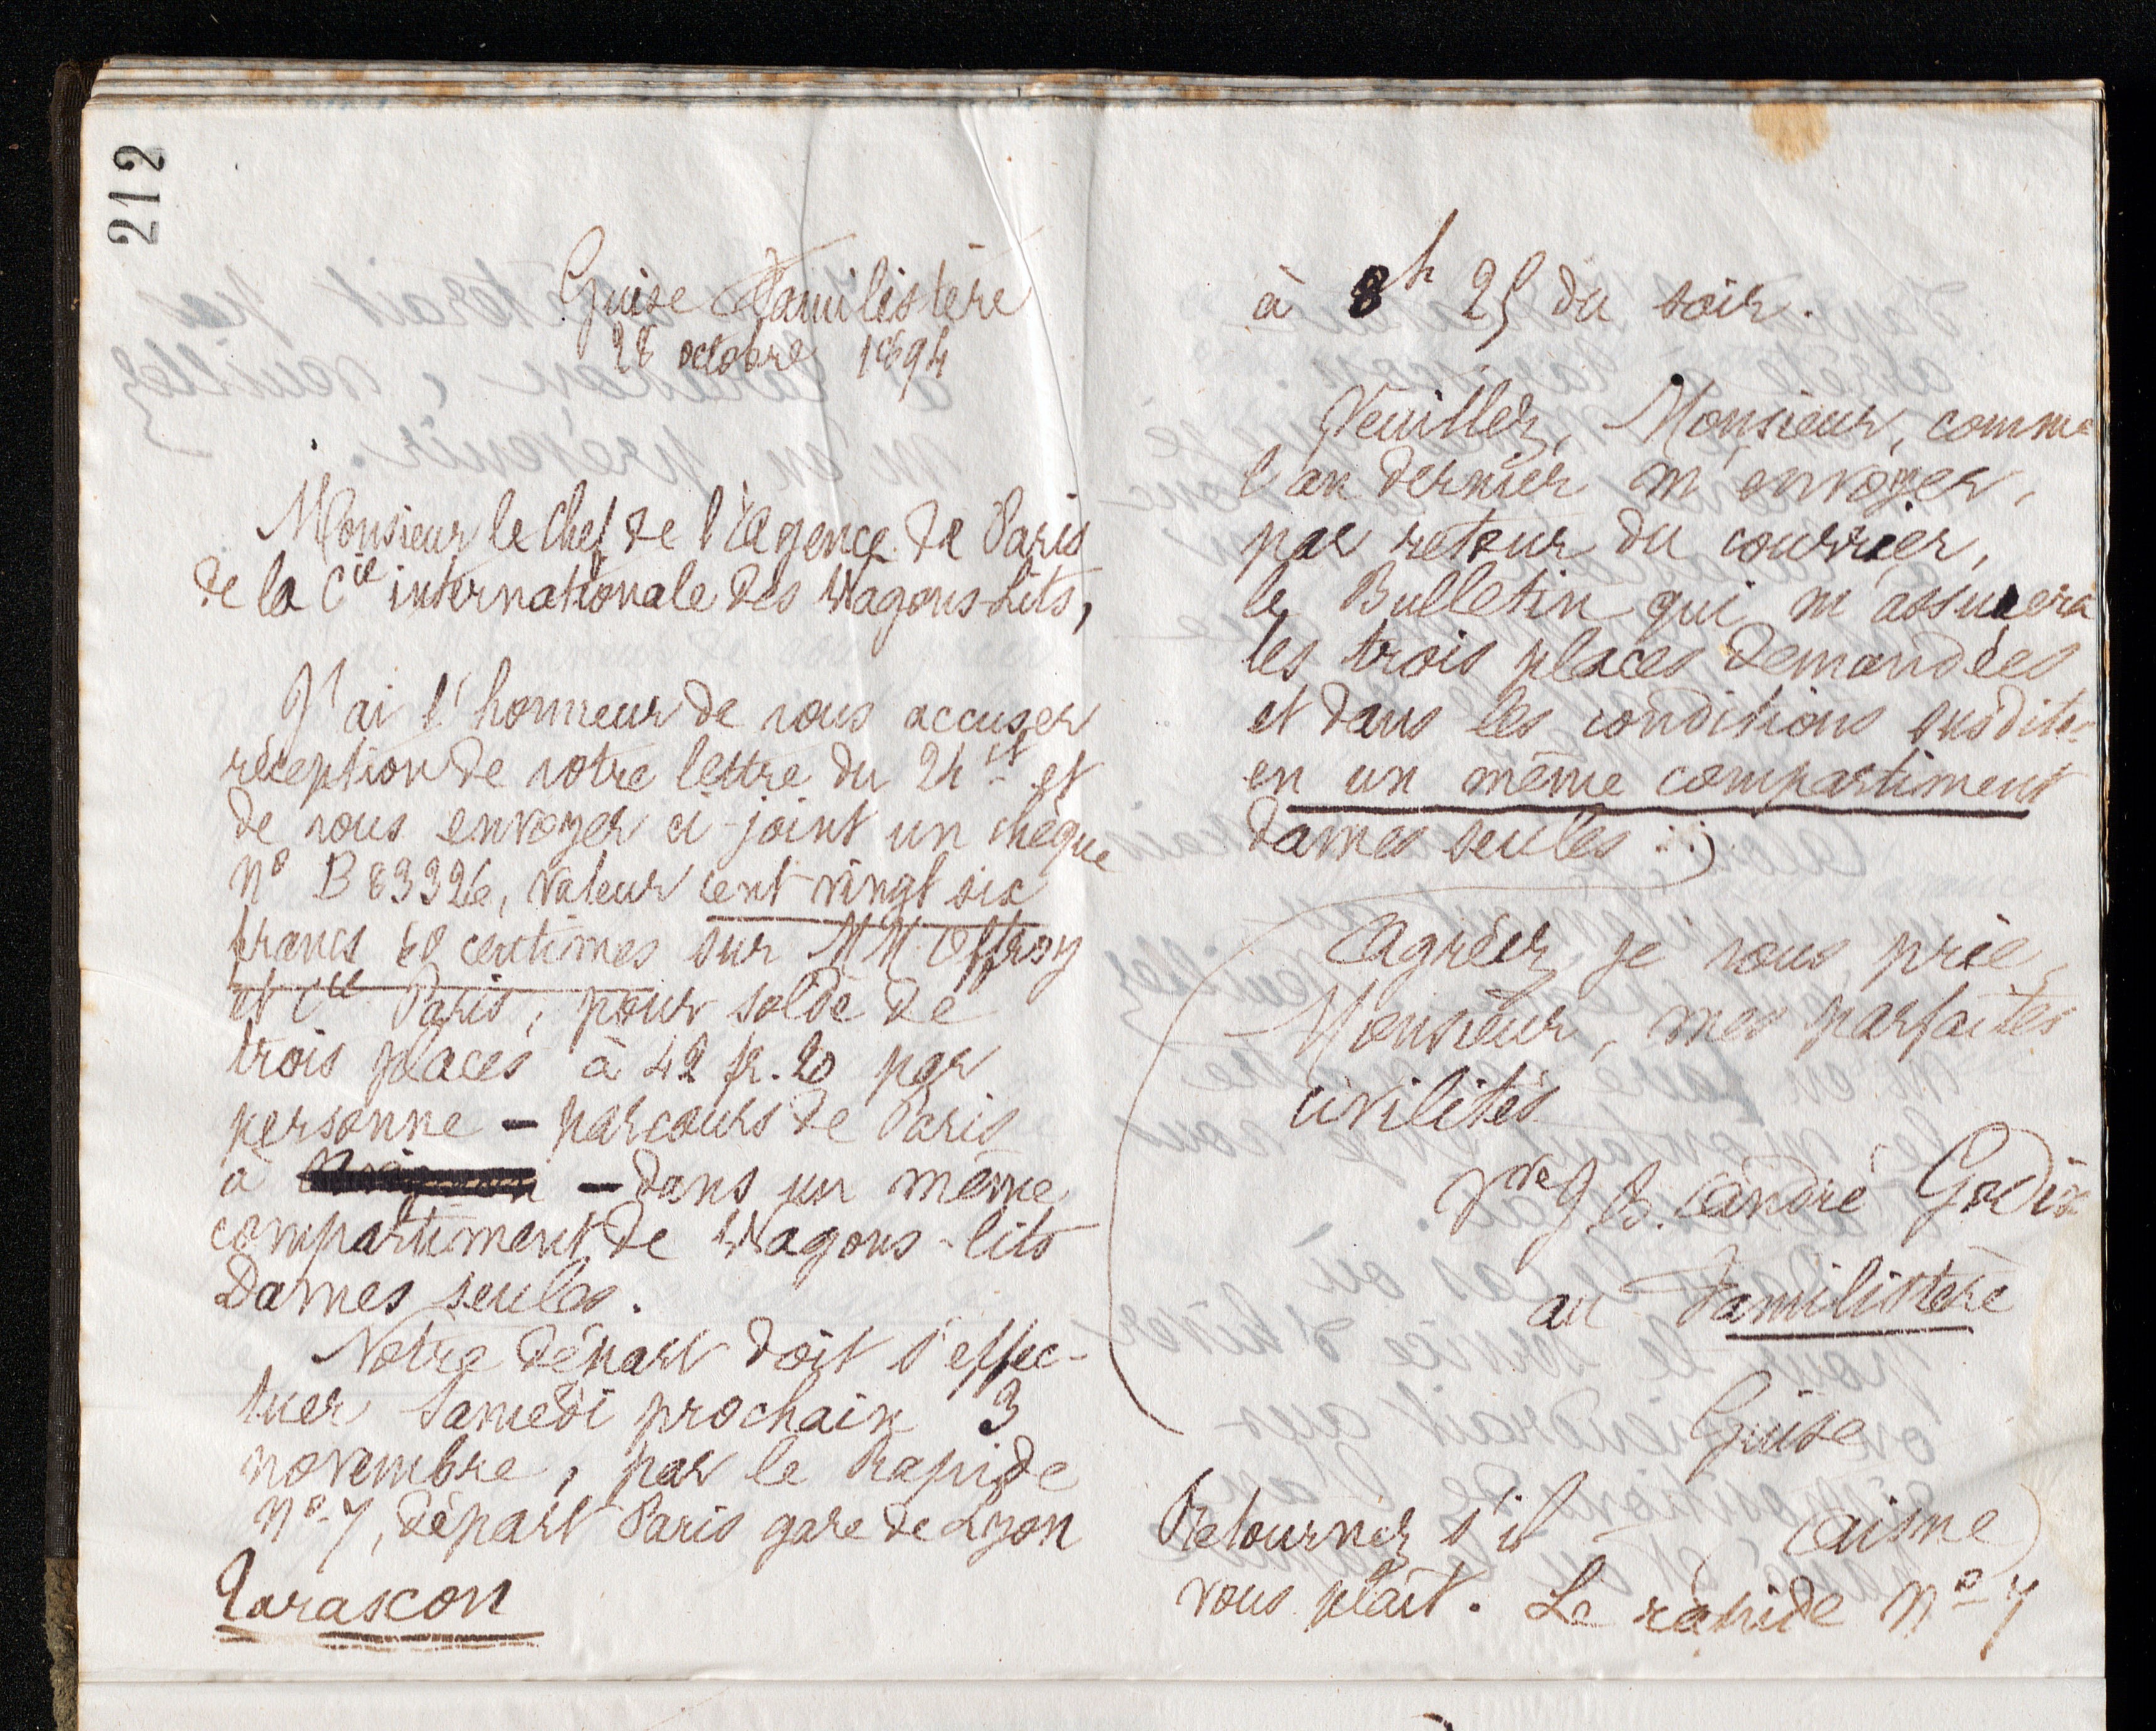 212
Guise Familistère
28 octobre 1894
Monsieur le Chef de l'Agence de Paris
de la Cie internationale des Wagons-Lits,
J'ai l'honneur de vous accuser
réception de votre lettre du 24 ct et
de vous envoyer ci-joint un chèque
No B 83326, valeur cent vingt six
francs 60 centimes sur MM. Offroy
et Cie Paris, pour solde de
trois places à 42 fr. 20 par
personne – parcours de Paris
à – dans un même
compartiment de Wagons-lits
Dames seules.
Notre départ doit s'effec-
tuer Samedi prochain 3
novembre, par le Rapide
No 7, départ Paris gare de Lyon
Tarascon
à 8h 25 du soir.
Veuillez, Monsieur, comme
l'an dernier m'envoyer,
par retour du courrier,
le Bulletin qui m'assurera
les trois places demandées
et dans les conditions susdites
en un même compartiment
dames seules
Agréez, je vous prie,
Monsieur, mes parfaites
civilités
Vve J. B. André Godin
au Familistère
Guise
Retournez s'il (Aisne)
vous plaît. Le rapide No 7